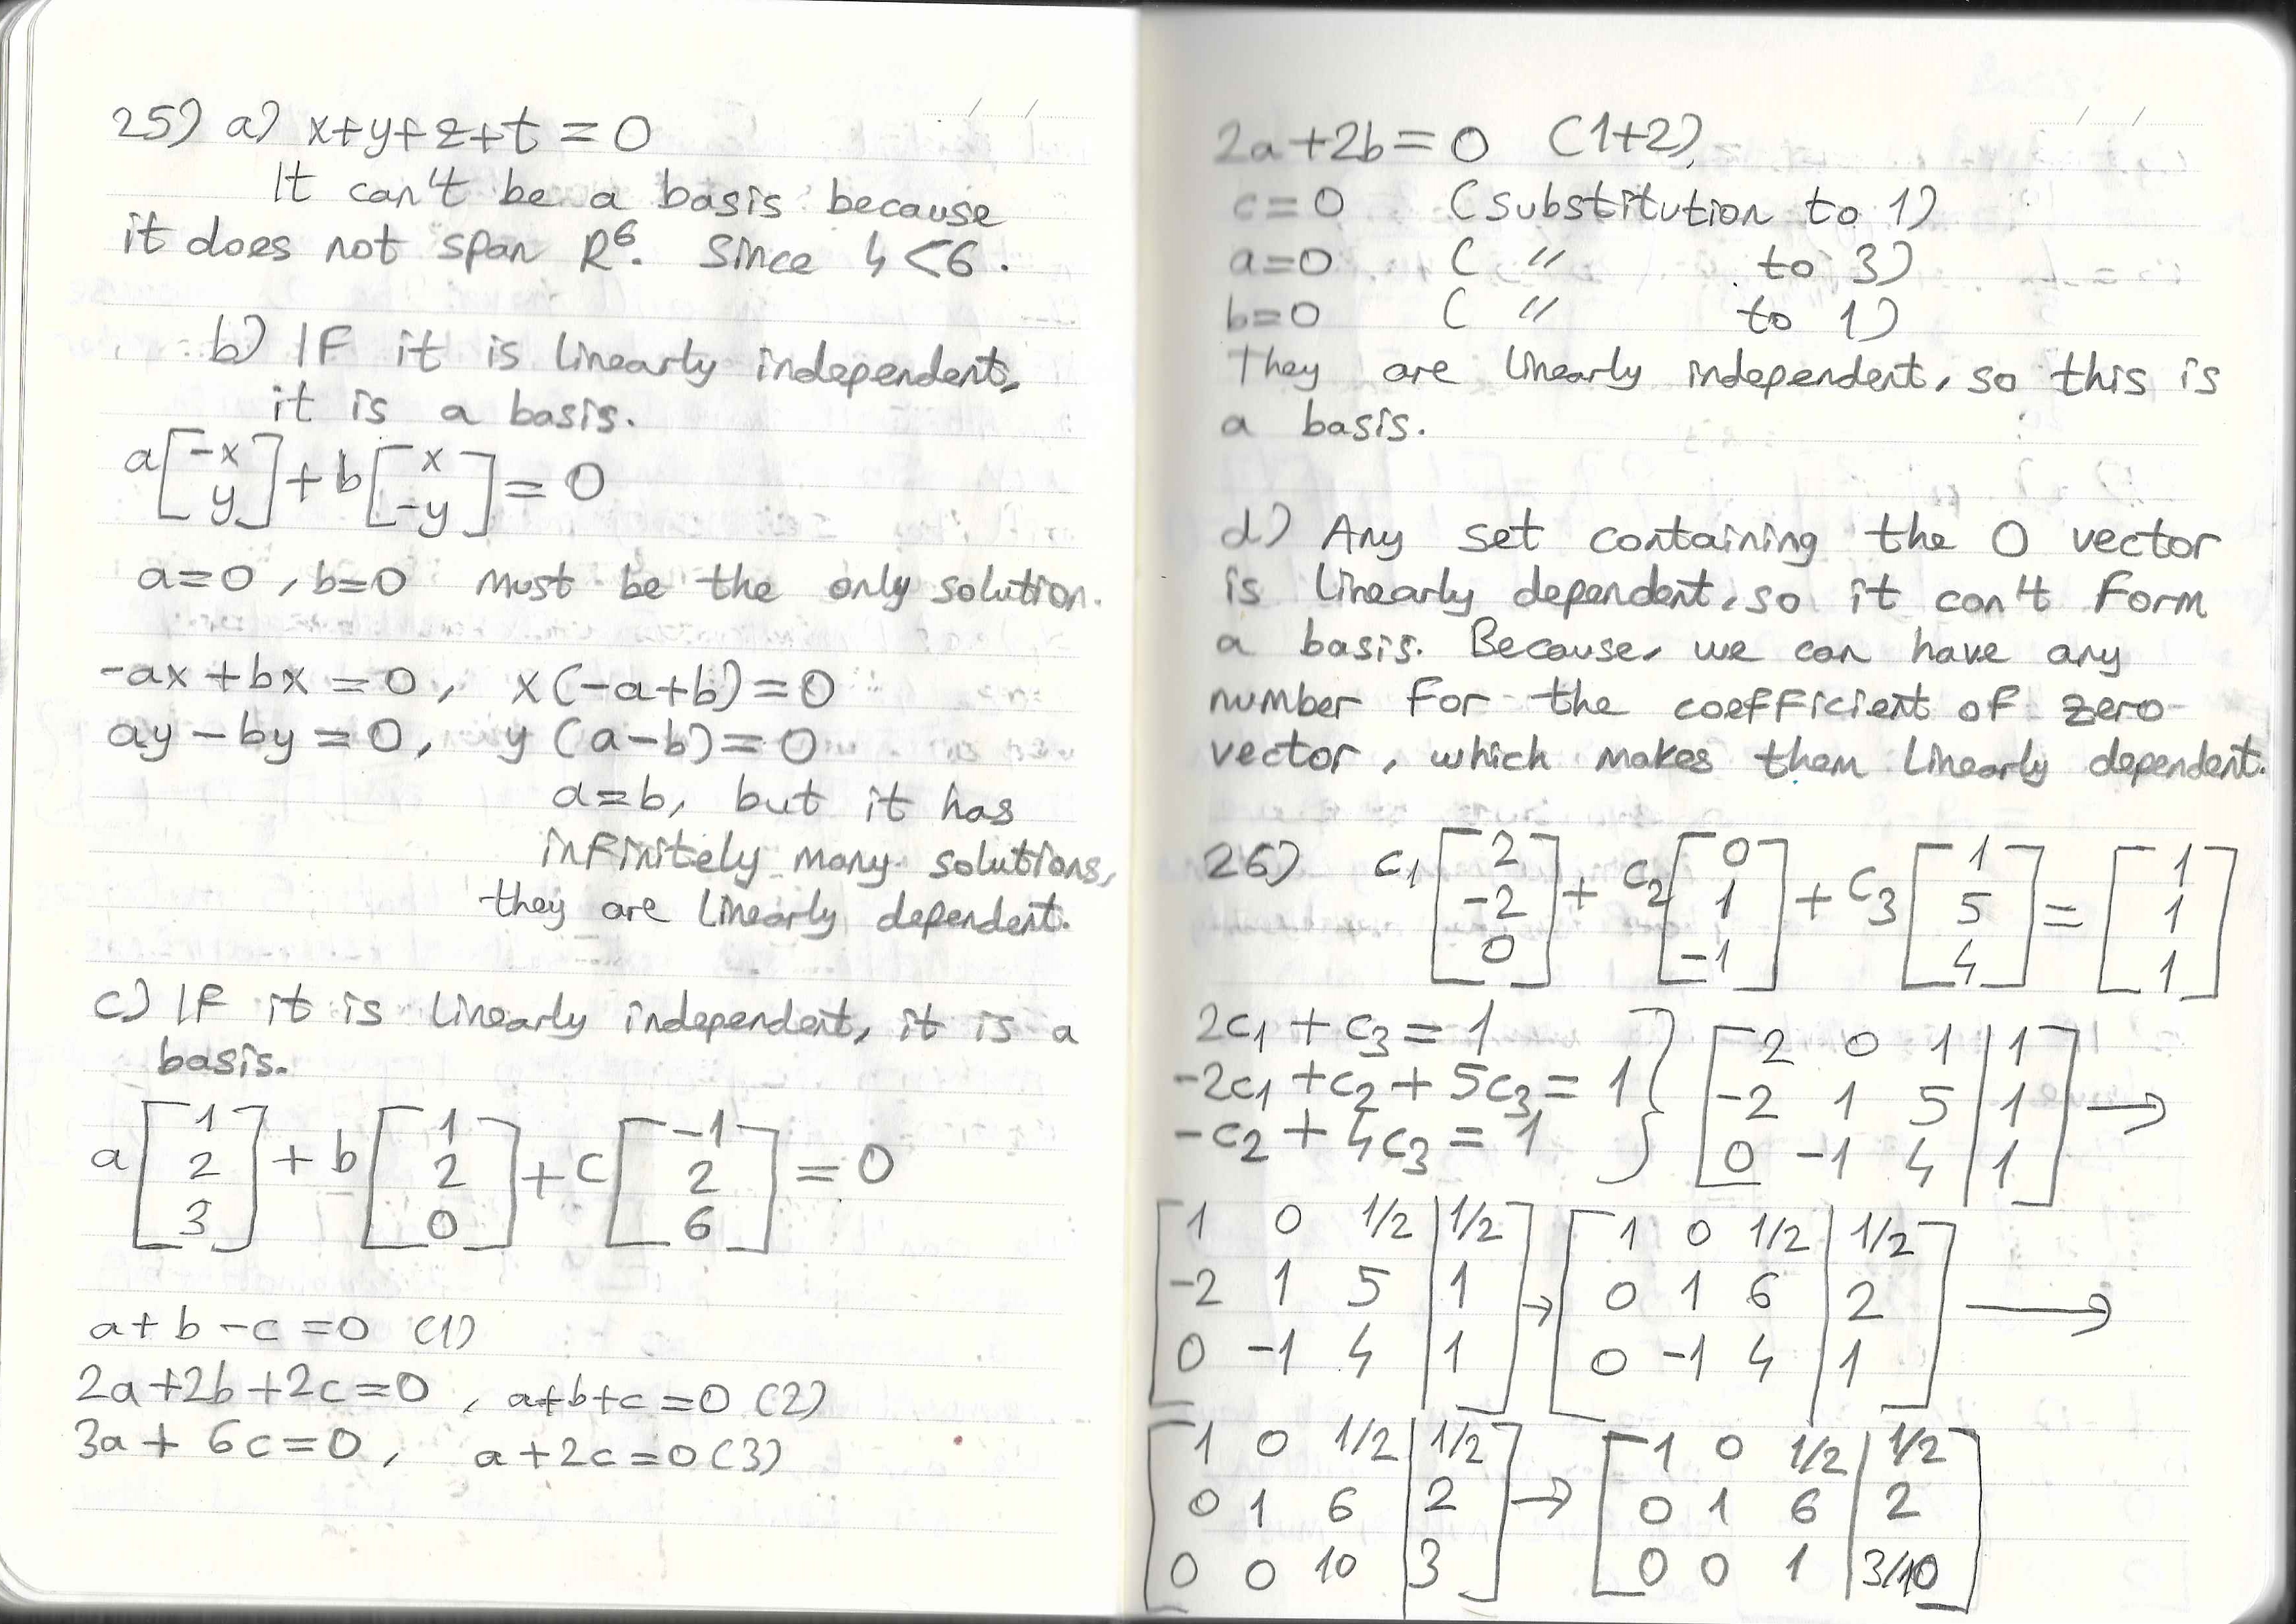 25) a) x+y+z+t=0
It can't be a basis because
it does not span R⁶. Since 4<6.
b) If it is linearly independent,
it is a basis.
a[-x y] + b[x -y] = 0
a=0, b=0 must be the only solution.
-ax+bx=0, x(-a+b)=0
ay-by=0, y(a-b)=0
a=b, but it has
infinitely many solutions,
they are linearly dependent.
c) If it is linearly independent, it is a
basis.
a[1 2 3] + b[1 2 0] + c[-1 2 6] = 0
a+b-c=0 (1)
2a+2b+2c=0, a+b+c=0 (2)
3a+6c=0, a+2c=0 (3)
2a+2b=0 (1+2),
c=0 (substitution to 1)
a=0 ( " to 3)
b=0 ( " to 1)
They are linearly independent, so this is
a basis.
d) Any set containing the 0 vector
is linearly dependent, so it can't form
a basis. Because, we can have any
number for the coefficient of zero
vector, which makes them linearly dependent.
26) c₁[2 -2 0] + c₂[0 1 -1] + c₃[1 5 4] = [1 1 1]
2c₁+c₃=1
-2c₁+c₂+5c₃=1
-c₂+4c₃=1
} [2 0 1 | 1
-2 1 5 | 1
0 -1 4 | 1] →
[1 0 1/2 | 1/2
-2 1 5 | 1
0 -1 4 | 1] →
[1 0 1/2 | 1/2
0 1 6 | 2
0 -1 4 | 1] →
[1 0 1/2 | 1/2
0 1 6 | 2
0 0 10 | 3] →
[1 0 1/2 | 1/2
0 1 6 | 2
0 0 1 | 3/10]